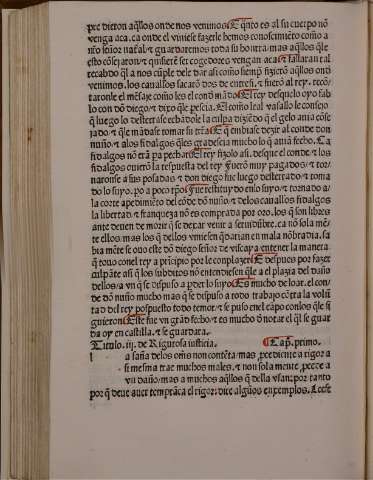 pꝛe dieron aq̃llos onde nos venimos E q̃nto es al su cuerpo nō
venga aca. ca onde el viniese fazerle hemos conoscimiẽto como a
nr̃o señor natal & guardaremos toda su honrra. mas aq̃llos q̃le
esto cōsejaron & quisierẽ ser cogedores vengan aca & fallaran tal
recabdo q̃l a nos cũple dele dar asi como siemp̃ fizierõ aq̃llos ond
venimos. los cavallos sacarõ dos de & fuerõ al rey. recõ
taronle el mẽsaje como les el cond mãdo El rey desquelo oyo fab
lo con dõ diego & dixo q̃le pescia. El como leal vasallo le consejo
q̃ luego lo desterrase echãdole la culpa diziẽdo q̃ el gelo avia cõse
jado & q̃le mãdase tomar su trr̃a E q̃ embiase dezir al conde don
nuño & alos fidalgos q̃les gradescia mucho lo q̃ aviã fecho. Ca
fidalgos nõ erã pa pechar El rey fizolo asi. desque el conde & los
fidalgos oyerõ la respuesta del rey fuerõ muy pagados & tor
naronse a sus posadas & don diego fue luego desterrado & toma
do lo suyo. po a poco tp̃o fue restituydo enlo suyo & tornado a
la corte apedimiẽto del cõde dõ nuño & delos cavallos fidalgos
la libertad & franqueza nõ es comprada por oro. los q̃ son libres
ante deuen de morir q̃ se dexar venir a servidũbre. ca nõ sola mẽ
te ellos mas los q̃ dellos viniesen q̃darian en mala nõbradia. sa
bia mẽte se ouo este dõ diego señor de viscaya entener la manera
q̃ touo conel rey a prĩcipio por le conplazer E despues por fazer
culpãte asi q̃ los subditos nõ entendiesen q̃le a el plazia del daño
dellos & a vn q̃ se dispuso a pder lo suyo Es mucho de loar. el con
de dõ nuño mucho mas q̃ se dispuso a todo trabajo cõtra la volũ
tad del rey pospuesto todo temor & se puso enel cãpo conlos q̃le si
guieron Este fue vn grãd fecho & es mucho d̃ notar el q̃l se guar
da oy en castilla. & se guardara.
Titulo. iij. de Rigurosa iusticia. Cap̃. primo.
l a saña delos oms̃ non contẽta. mas pꝛecediente a rigor a
si mesma trae muchos males. & non sola mente pꝛece a
vn daño. mas a muchos aq̃llos q̃ della vsan: por tanto
por q̃ deue aver temprãca el rigor: dire algũos enxemplos. Leese